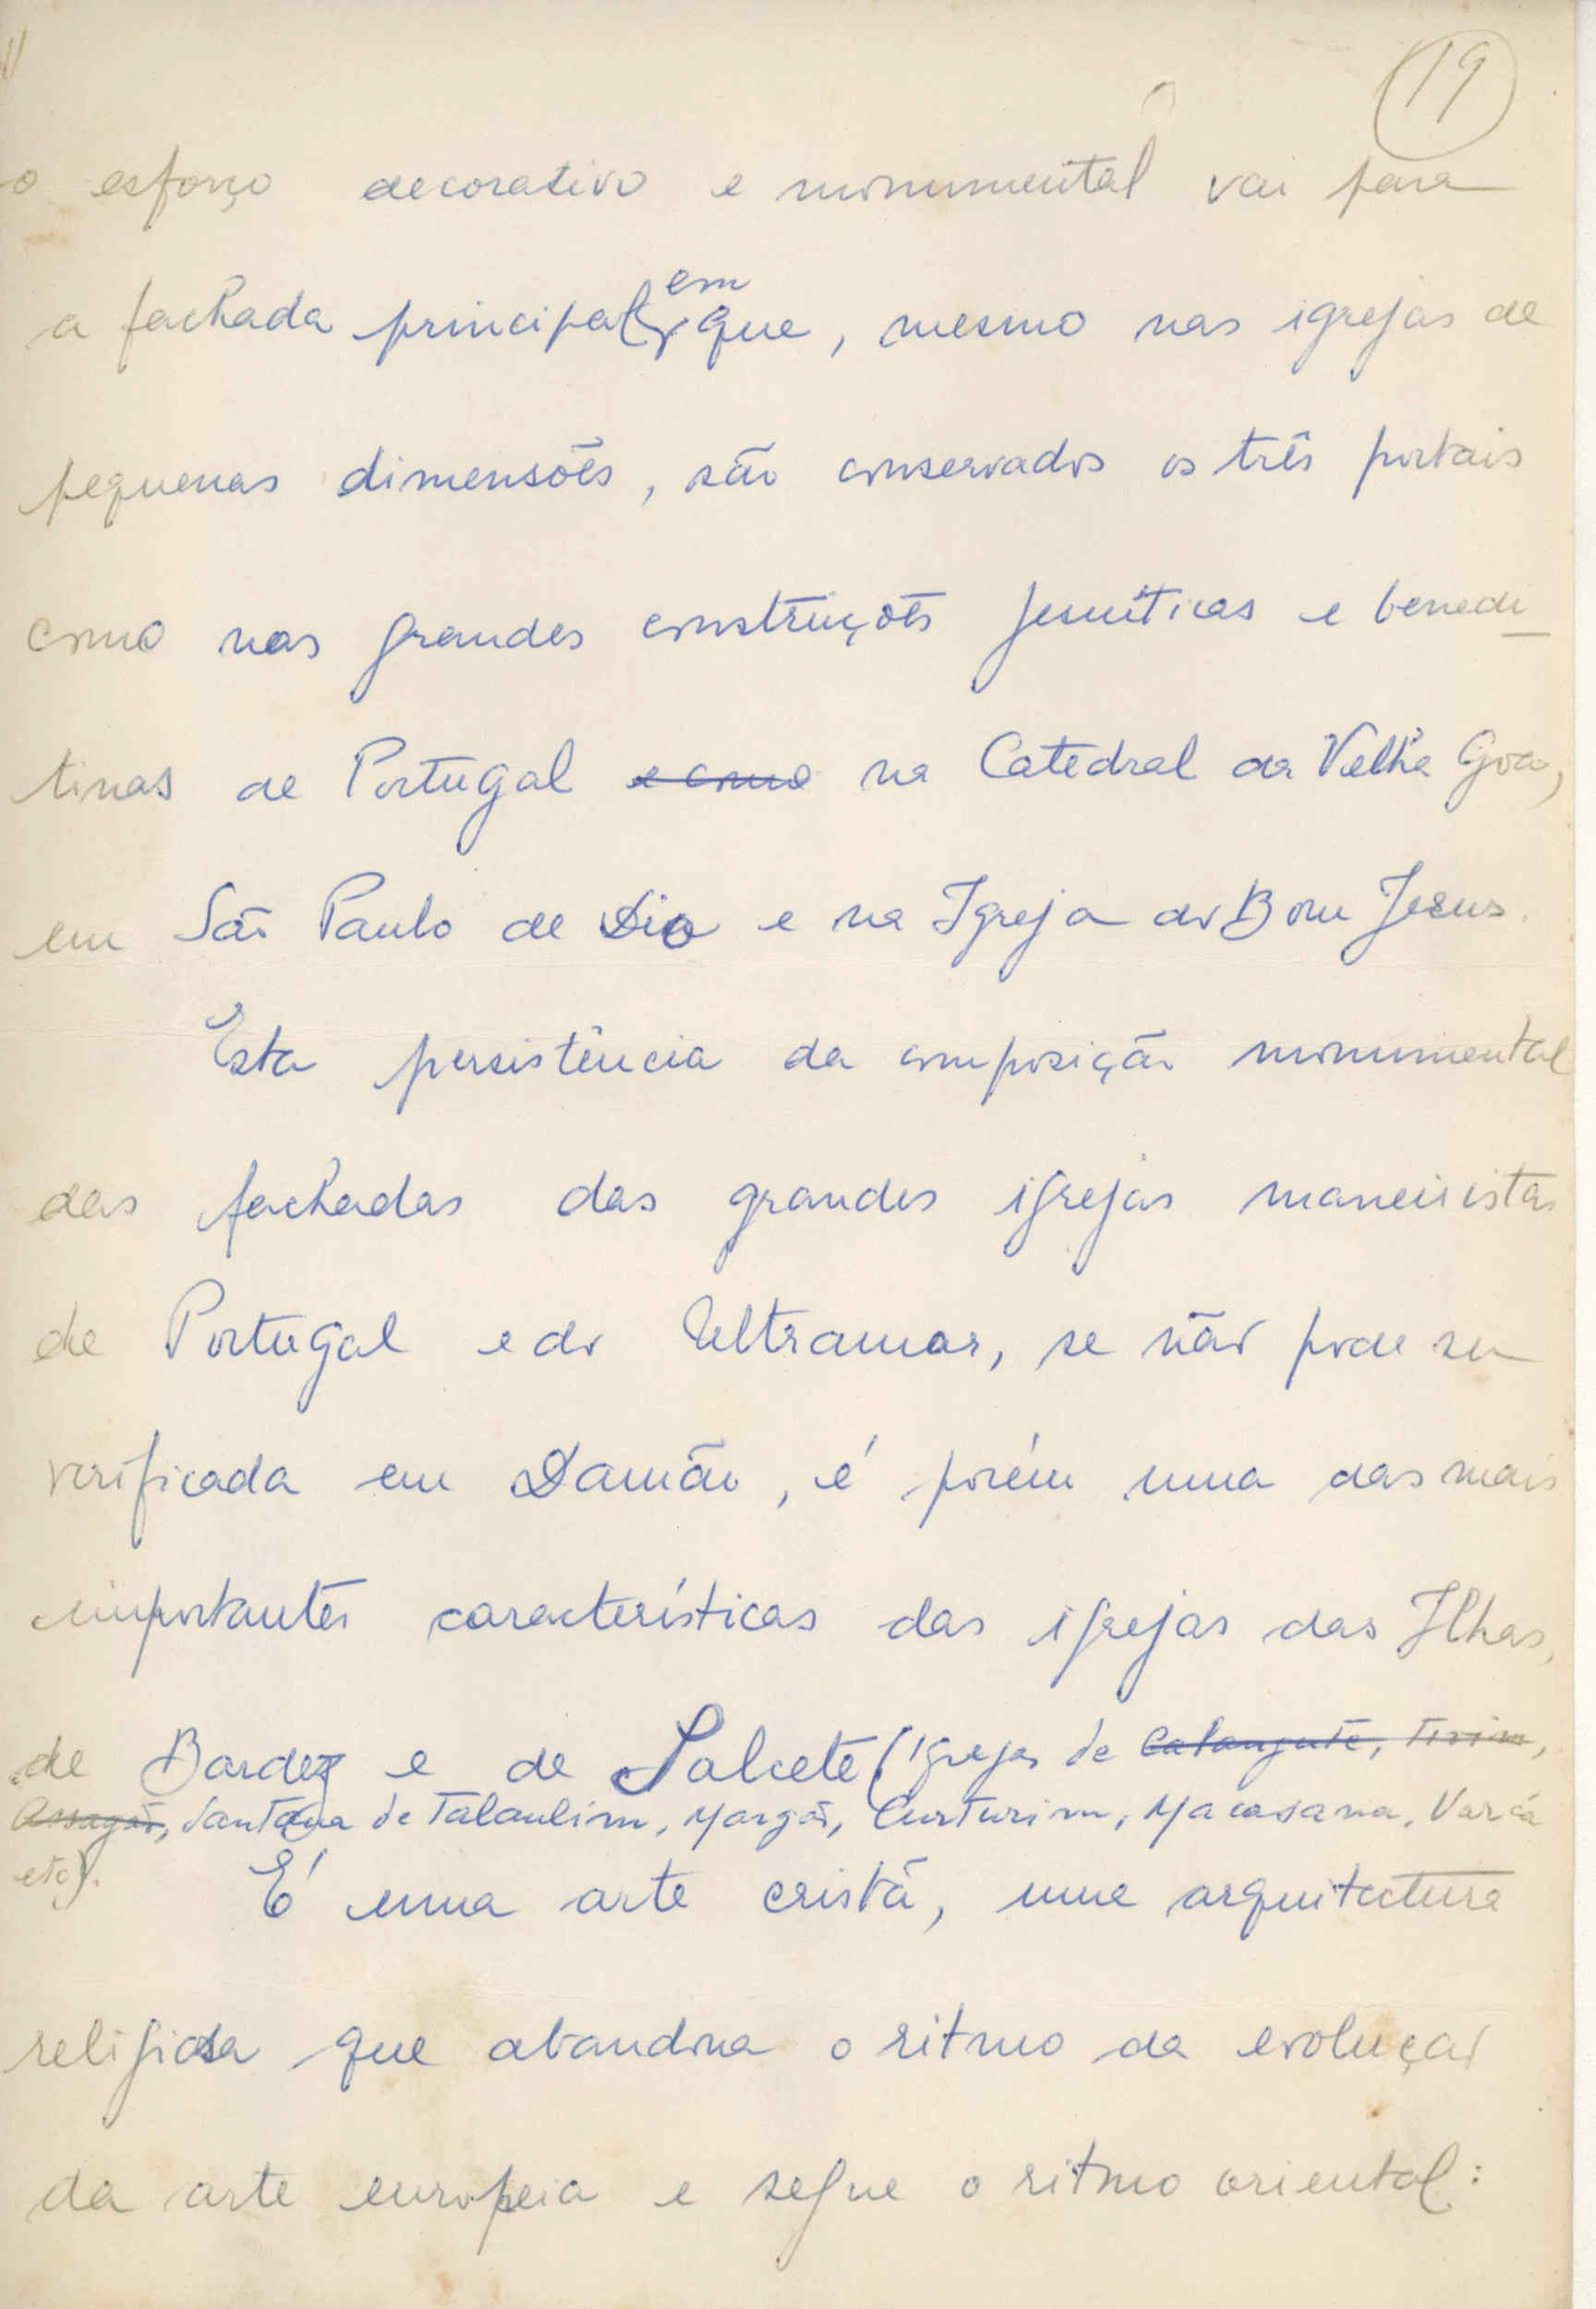 19
o esforço decorativo e monumental vai para
a fachada principal, em que, mesmo nas igrejas de
pequenas dimensões, são conservados os três portais
como nas grandes construções jesuíticas e benedi-
tinas de Portugal e como na Catedral da Velha Goa,
em São Paulo de Dio e na Igreja do Bom Jesus.
Esta persistência da composição monumental
das fachadas das grandes igrejas maneiristas
de Portugal e do Ultramar, se não pode ser
verificada em Damão, é porém uma das mais
importantes características das igrejas das Ilhas,
de Bardez e de Salcete (igrejas de Calangute, Tivim,
Assagão, Santana de Talaulim, Margão, Curturim, Macasana, Varcá
etc).
É uma arte cristã, uma arquitectura
religiosa que abandona o ritmo da evolução
da arte europeia e segue o ritmo oriental: